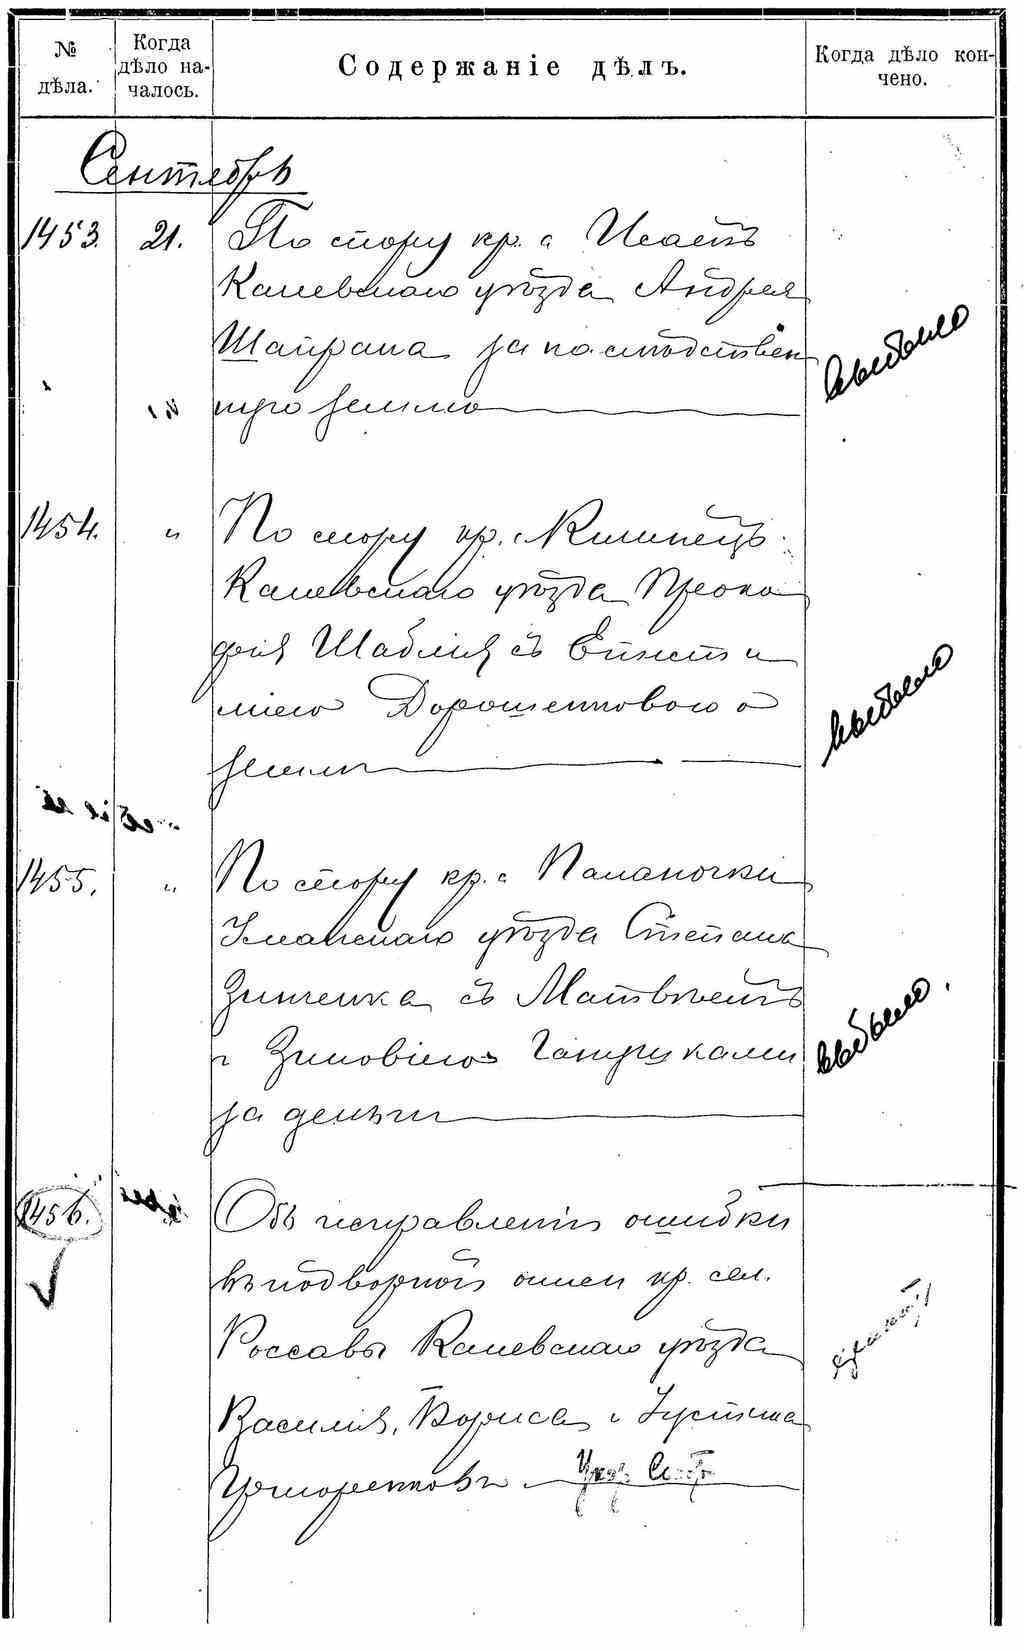 № дѣла.
Когда дѣло на-
чалось.
Содержаніе дѣлъ.
Когда дѣло кон-
чено.
Сентябрь
1453. 21. По спору кр. с
Каневскаго уѣзда Андрея
за наслѣдствен
ную землю
выбыло
1454. " По спору кр. с.
Каневскаго уѣзда Проко
фія Шаблія съ Евѳи
міею Дорошенковою о
землѣ
выбыло
1455. " По спору кр. с. Паланочки
Уманскаго уѣзда Степана
Зинченка съ Матвѣемъ
и Зиновіемъ
за деньги
выбыло.
1456. Объ исправленіи ошибки
въ подворной описи кр. сел.
Россавы Каневскаго уѣзда
Василія, Бориса и Устина